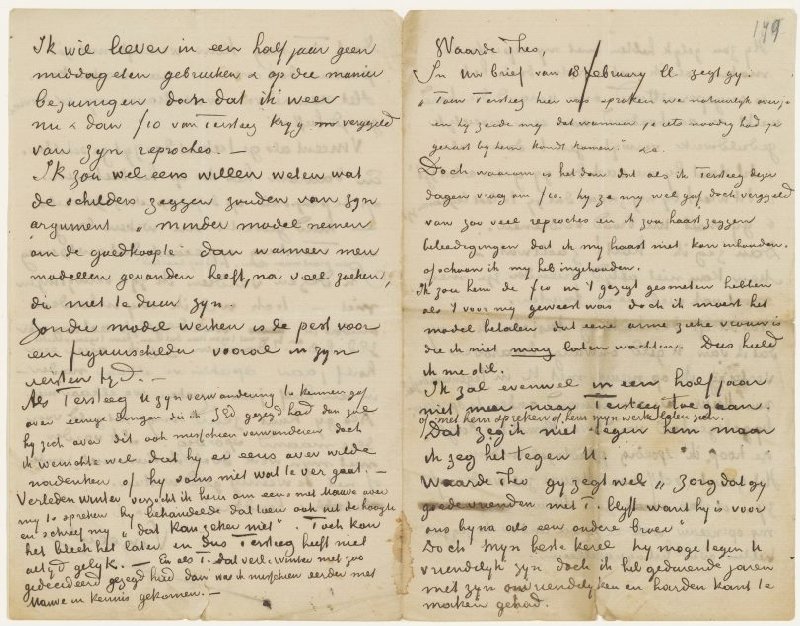 179
Waarde Theo,
In Uw brief van 18 February ll. zegt gy.
„Toen Tersteeg hier was spraken we natuurlyk over je
en hy zeide my dat wanneer je iets noodig had je
gerust by hem kondt komen." &c.
Doch waarom is het dan dat als ik Tersteeg dezer
dagen vroeg om f10. hy ze my wel gaf doch vergezeld
van zoo veel reproches en ik zou haast zeggen
beleedigingen dat ik my haast niet kon inhouden.
ofschoon ik my heb ingehouden.
Ik zou hem de f10 in 't gezigt gesmeten hebben
als 't voor my geweest was doch ik moest het
model betalen dat eene arme zieke vrouw is
die ik niet mag laten wachten. Dus hield
ik me stil.
Ik zal evenwel in een half jaar
niet meer naar Tersteeg toe gaan.
of met hem spreken of hem myn werk laten zien.
Dat zeg ik niet tegen hem maar
ik zeg het tegen U.
Waarde Theo gy zegt wel „Zorg dat gy
goede vrienden met T. blyft want hy is voor
ons byna als een oudere broer"
Doch myn beste kerel hy moge tegen U
vriendelyk zyn doch ik heb gedurende jaren
met zyn onvriendelyken en harden kant te
maken gehad.
Ik wil liever in een half jaar geen
middageten gebruiken & op die manier
bezuinigen dan dat ik weer
nu & dan f10 van Tersteeg kryg vergezeld
van zyn reproches. –
Ik zou wel eens willen weten wat
de schilders zeggen zouden van zyn
argument „minder model nemen
om de goedkoopte" dan wanneer men
modellen gevonden heeft, na veel zoeken,
die niet te duur zyn.
Zonder model werken is de pest voor
een figuurschilder vooral in zyn
eersten tyd. –
Als Tersteeg U zyn verwondering te kennen gaf
over eenige dingen die ik gezegd had dan zal
hy zich over dit ook misschien verwonderen doch
ik wenschte wel dat hy er eens over wilde
nadenken of hy soms niet wat te ver gaat. –
Verleden winter verzocht ik hem om eens met Mauve over
my te spreken hy behandelde dat toen ook uit de hoogte
en schreef my „dat kan zeker niet". Toch kon
het best het laten en dus Tersteeg heeft niet
altyd gelyk. – En als T. dat verl. winter niet zoo
gedecideerd gezegd had dan was ik misschien eerder met
Mauve in kennis gekomen. –